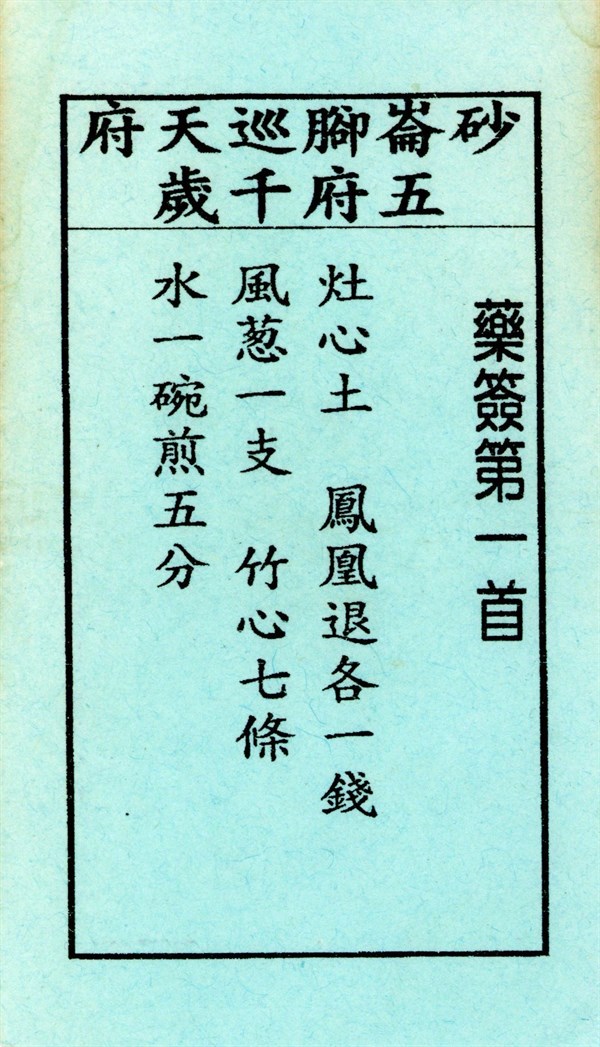 砂崙腳巡天府
五府千歲
藥簽第一首
灶心土　鳳凰退各一錢
風葱一支　竹心七條
水一碗煎五分